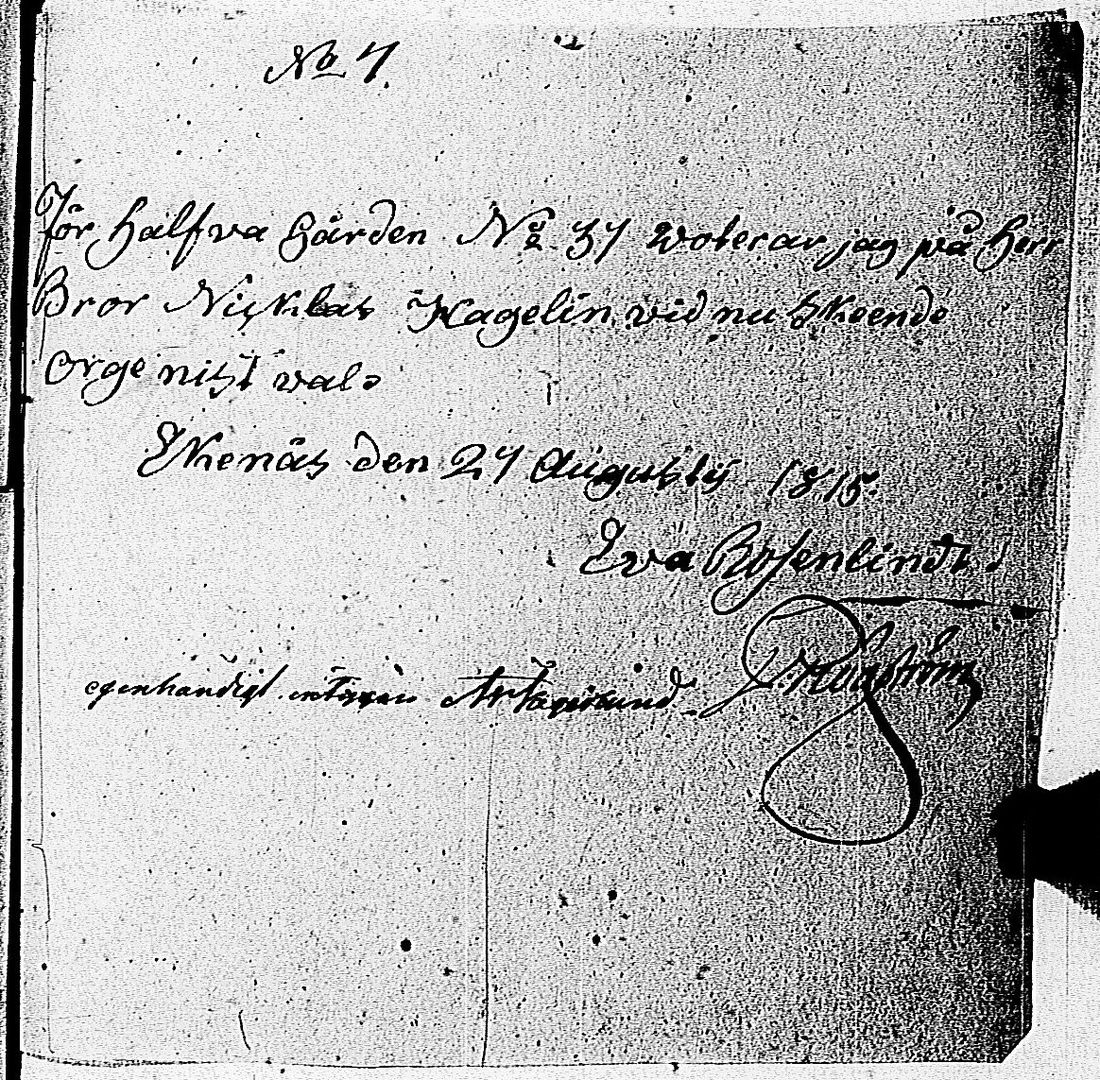 No 7.
För halfva Gården No 37 voterar jag på Herr
Bror Nicklas Hagelin vid nu skeende
orgenist val.
Ekenäs den 27 Augusty 1815.
Eva Rosenlindt
egenhändigt